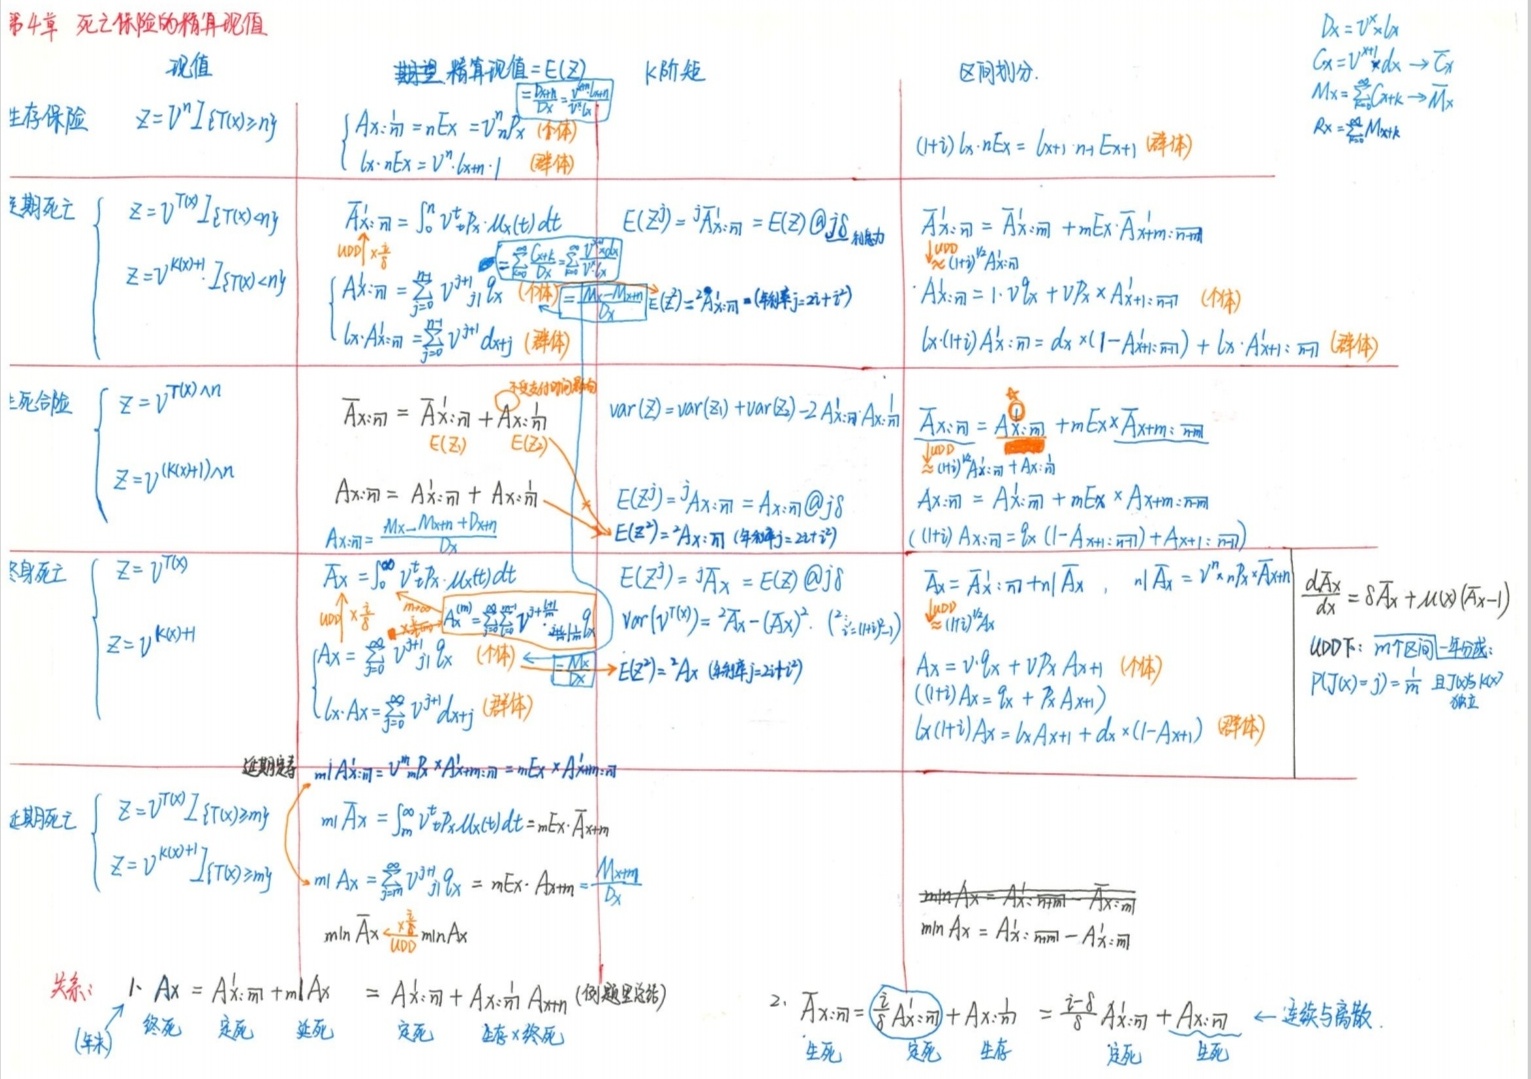 第4章 死亡保险的精算现值
现值 精算现值=E(Z) K阶矩 区间划分.
Dx=v^x lx
Cx=v^{x+1} dx → C̄x
Mx=∑_{k=0}^∞ Cx+k → M̄x
Rx=∑_{k=0}^∞ Mx+k
生存保险 Z=v^n I{T(x)≥n}
=Dx+n/Dx=v^{x+n}lx+n/v^x lx
Ax:n̅|^1=nEx=v^n nPx (个体)
lx·nEx=v^n·lx+n·1 (群体)
(1+i)lx·nEx=lx+1·n-1Ex+1 (群体)
定期死亡 Z=v^{T(x)}I{T(x)<n}
Z=v^{K(x)+1}·I{T(x)<n}
Ā^1x:n̅|=∫_0^n v^t tPx·μx(t)dt
UDD ×i/δ
=∑_{k=0}^∞ Cx+k/Dx=∑_{k=0}^∞ v^{x+1}dx/v^x lx
A^1x:n̅|=∑_{j=0}^{n-1} v^{j+1} j|qx (个体) =Mx-Mx+n/Dx
lx·A^1x:n̅|=∑_{j=0}^{n-1} v^{j+1}dx+j (群体)
E(Z^j)=^jĀ^1x:n̅|=E(Z)@jδ 利息力
E(Z²)=²A^1x:n̅| (年利率j=2i+i²)
Ā^1x:n̅|=Ā^1x:m̅|+mEx·Ā^1x+m:n-m̅|
UDD
≈(1+i)^{1/2}A^1x:n̅|
A^1x:n̅|=1·vqx+vPx×A^1x+1:n-1̅| (个体)
lx·(1+i)A^1x:n̅|=dx×(1-A^1x+1:n-1̅|)+lx·A^1x+1:n-1̅| (群体)
生死合险 Z=v^{T(x)∧n}
Z=v^{(K(x)+1)∧n}
不受支付时间影响
Āx:n̅|=Ā^1x:n̅|+Ax:n̅|^1
E(Z₁) E(Z₂)
Ax:n̅|=A^1x:n̅|+Ax:n̅|^1
Ax:n̅|=Mx-Mx+n+Dx+n/Dx
var(Z)=var(Z₁)+var(Z₂)-2A^1x:n̅|·Ax:n̅|^1
E(Z^j)=^jAx:n̅|=Ax:n̅|@jδ
E(Z²)=²Ax:n̅| (年利率j=2i+i²)
☆
Āx:n̅|=A^1x:m̅|+mEx×Āx+m:n-m̅|
UDD
≈(1+i)^{1/2}A^1x:n̅|+Ax:n̅|^1
Ax:n̅|=A^1x:m̅|+mEx×Ax+m:n-m̅|
((1+i)Ax:n̅|=qx(1-Ax+1:n-1̅|)+Ax+1:n-1̅|)
终身死亡 Z=v^{T(x)}
Z=v^{K(x)+1}
Āx=∫_0^∞ v^t tPx·μx(t)dt
UDD ×i/δ
m→∞
Ax=∑_{j=0}^∞ v^{j+1} j|qx (个体) =Mx/Dx
lx·Ax=∑_{j=0}^∞ v^{j+1}dx+j (群体)
E(Z^j)=^jĀx=E(Z)@jδ
var(v^{T(x)})=²Āx-(Āx)². (²i=(1+i)²-1)
E(Z²)=²Ax (年利率j=2i+i²)
Āx=Ā^1x:n̅|+n|Āx, n|Āx=v^n×nPx×Āx+n
UDD
≈(1+i)^{1/2}Ax
Ax=v·qx+vPx Ax+1 (个体)
((1+i)Ax=qx+Px Ax+1)
lx(1+i)Ax=lxAx+1+dx×(1-Ax+1) (群体)
dĀx/dx=δĀx+μ(x)(Āx-1)
UDD下: m个区间
P(J(x)=j)=1/m 且J(x)与K(x)
独立
延期定寿 m|A^1x:n̅|=v^m mPx×A^1x+m:n̅|=mEx×A^1x+m:n̅|
延期死亡 Z=v^{T(x)}I{T(x)≥m}
Z=v^{K(x)+1}I{T(x)≥m}
m|Āx=∫_m^∞ v^t tPxμx(t)dt=mEx·Āx+m
m|Ax=∑_{j=m}^∞ v^{j+1} j|qx=mEx·Ax+m=Mx+m/Dx
m|nĀx ← ×i/δ UDD m|nAx
m|nAx=A^1x:n+m̅|-Ā^1x:m̅|
m|nAx=A^1x:n+m̅|-A^1x:m̅|
关系: 1、Ax=A^1x:n̅|+n|Ax=A^1x:n̅|+Ax:n̅|^1 Ax+n (例题里总结)
(年末) 终死 定死 延死 定死 生存×终死
2. Āx:n̅|=i/δ A^1x:n̅|+Ax:n̅|^1=i-δ/δ A^1x:n̅|+Ax:n̅| ← 连续与离散.
生死 定死 生存 定死 生死